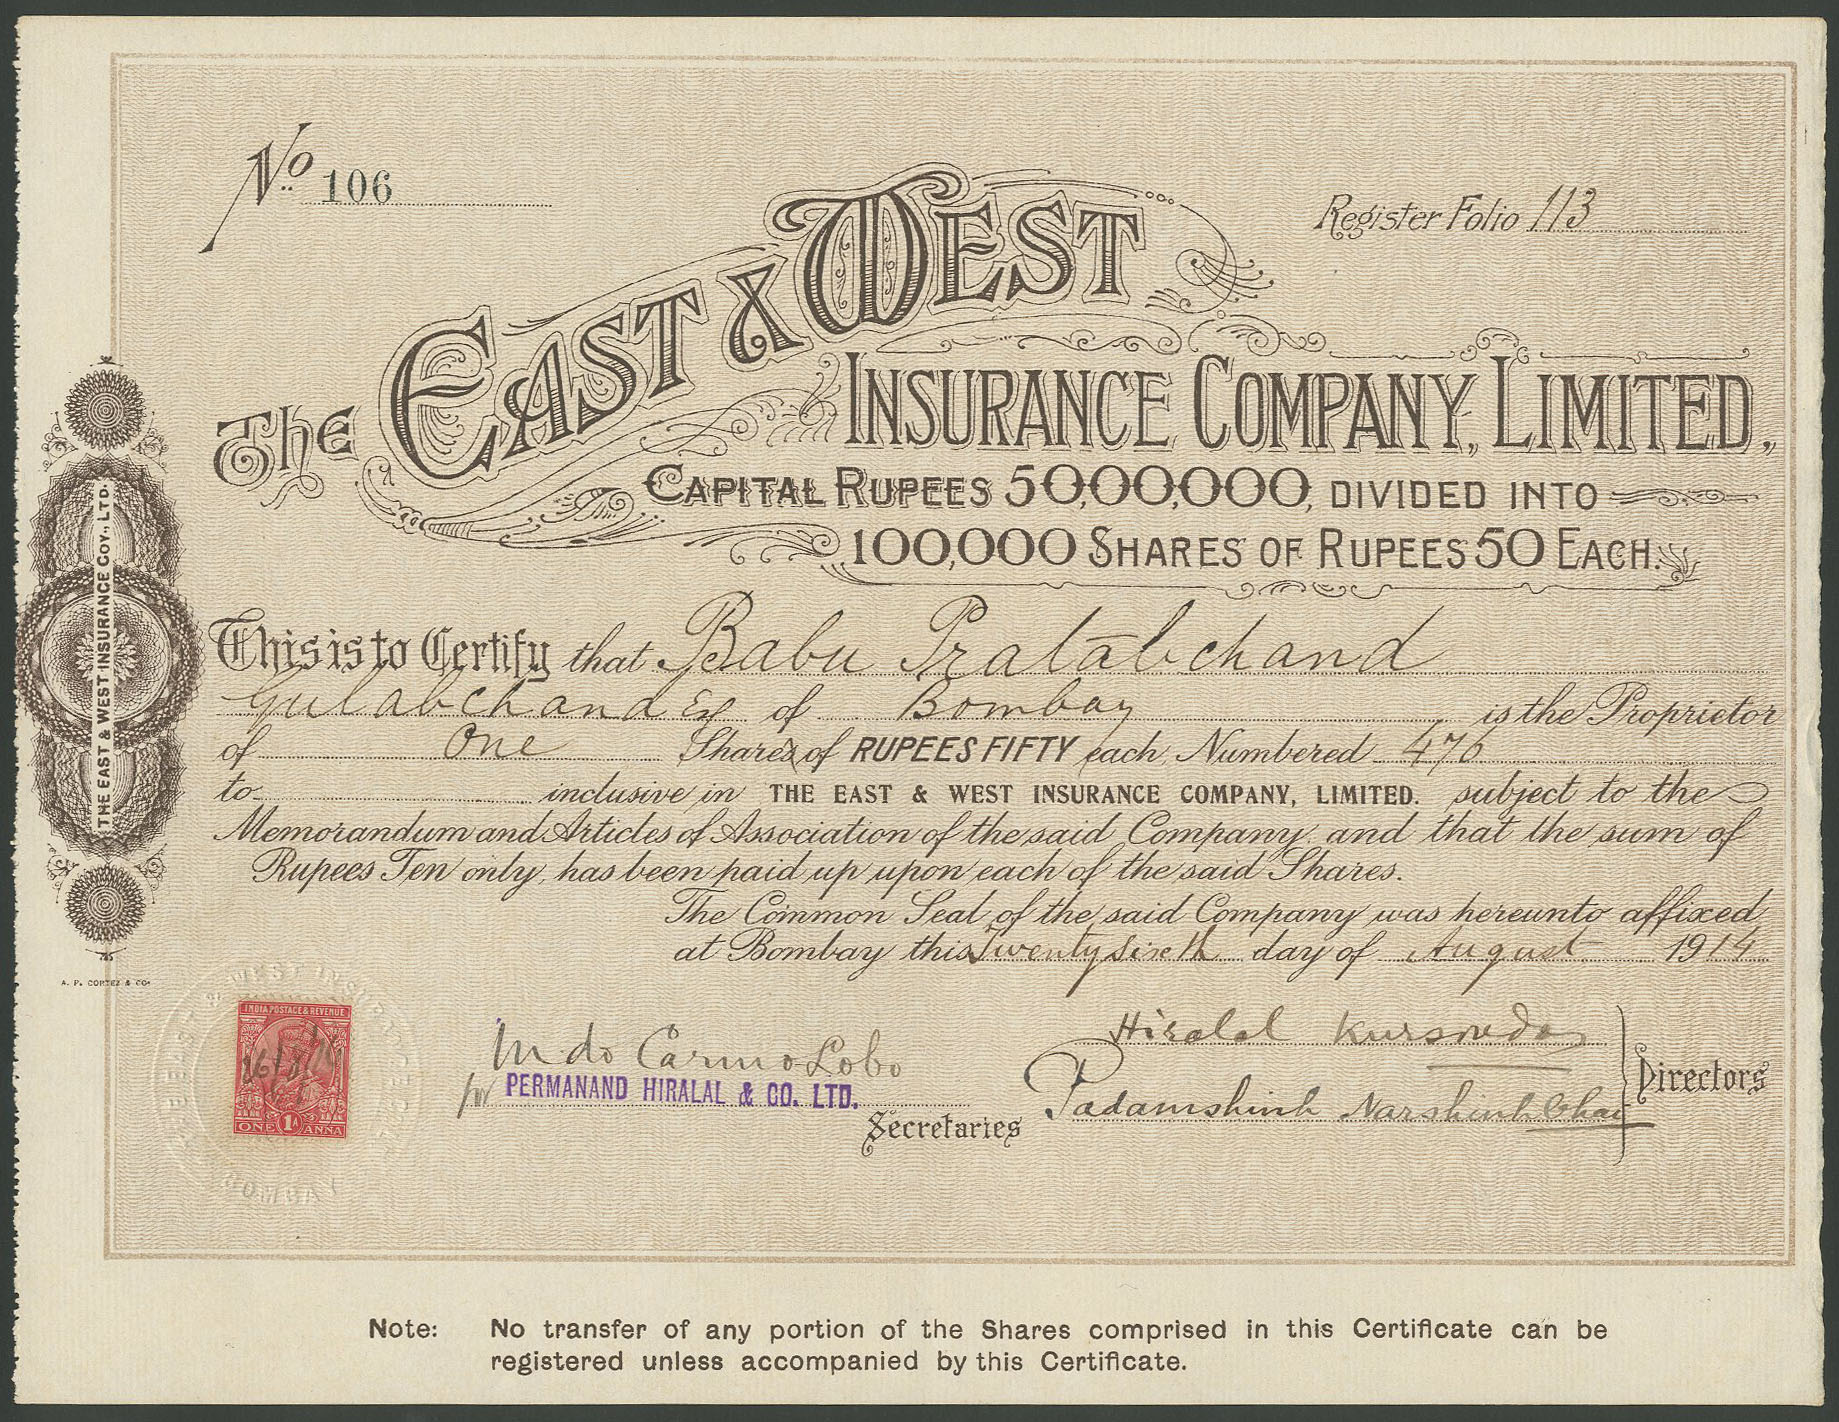 No. 106
Register Folio 113
The East & West
Insurance Company, Limited.,
Capital Rupees 50,00,000, divided into
100,000 Shares of Rupees 50 Each.
This is to Certify that Babu Pratabchand
Gulabchand Esq of Bombay is the Proprietor
of One Shares of RUPEES FIFTY each, Numbered 476
to inclusive in THE EAST & WEST INSURANCE COMPANY, LIMITED. subject to the
Memorandum and Articles of Association of the said Company and that the sum of
Rupees Ten only, has been paid up upon each of the said Shares.
The Common Seal of the said Company was hereunto affixed
at Bombay this Twenty sixth day of August 1914
THE EAST & WEST INSURANCE COY., LTD.
A. P. CORTEZ & CO.
INDIA POSTAGE & REVENUE
26/8/14
ONE 1A ANNA
EAST & WEST INSURANCE
BOMBAY
M do Carmo Lobo
for PERMANAND HIRALAL & CO. LTD.
Secretaries
Hiralal
Padamshinh
Directors
Note: No transfer of any portion of the Shares comprised in this Certificate can be
registered unless accompanied by this Certificate.